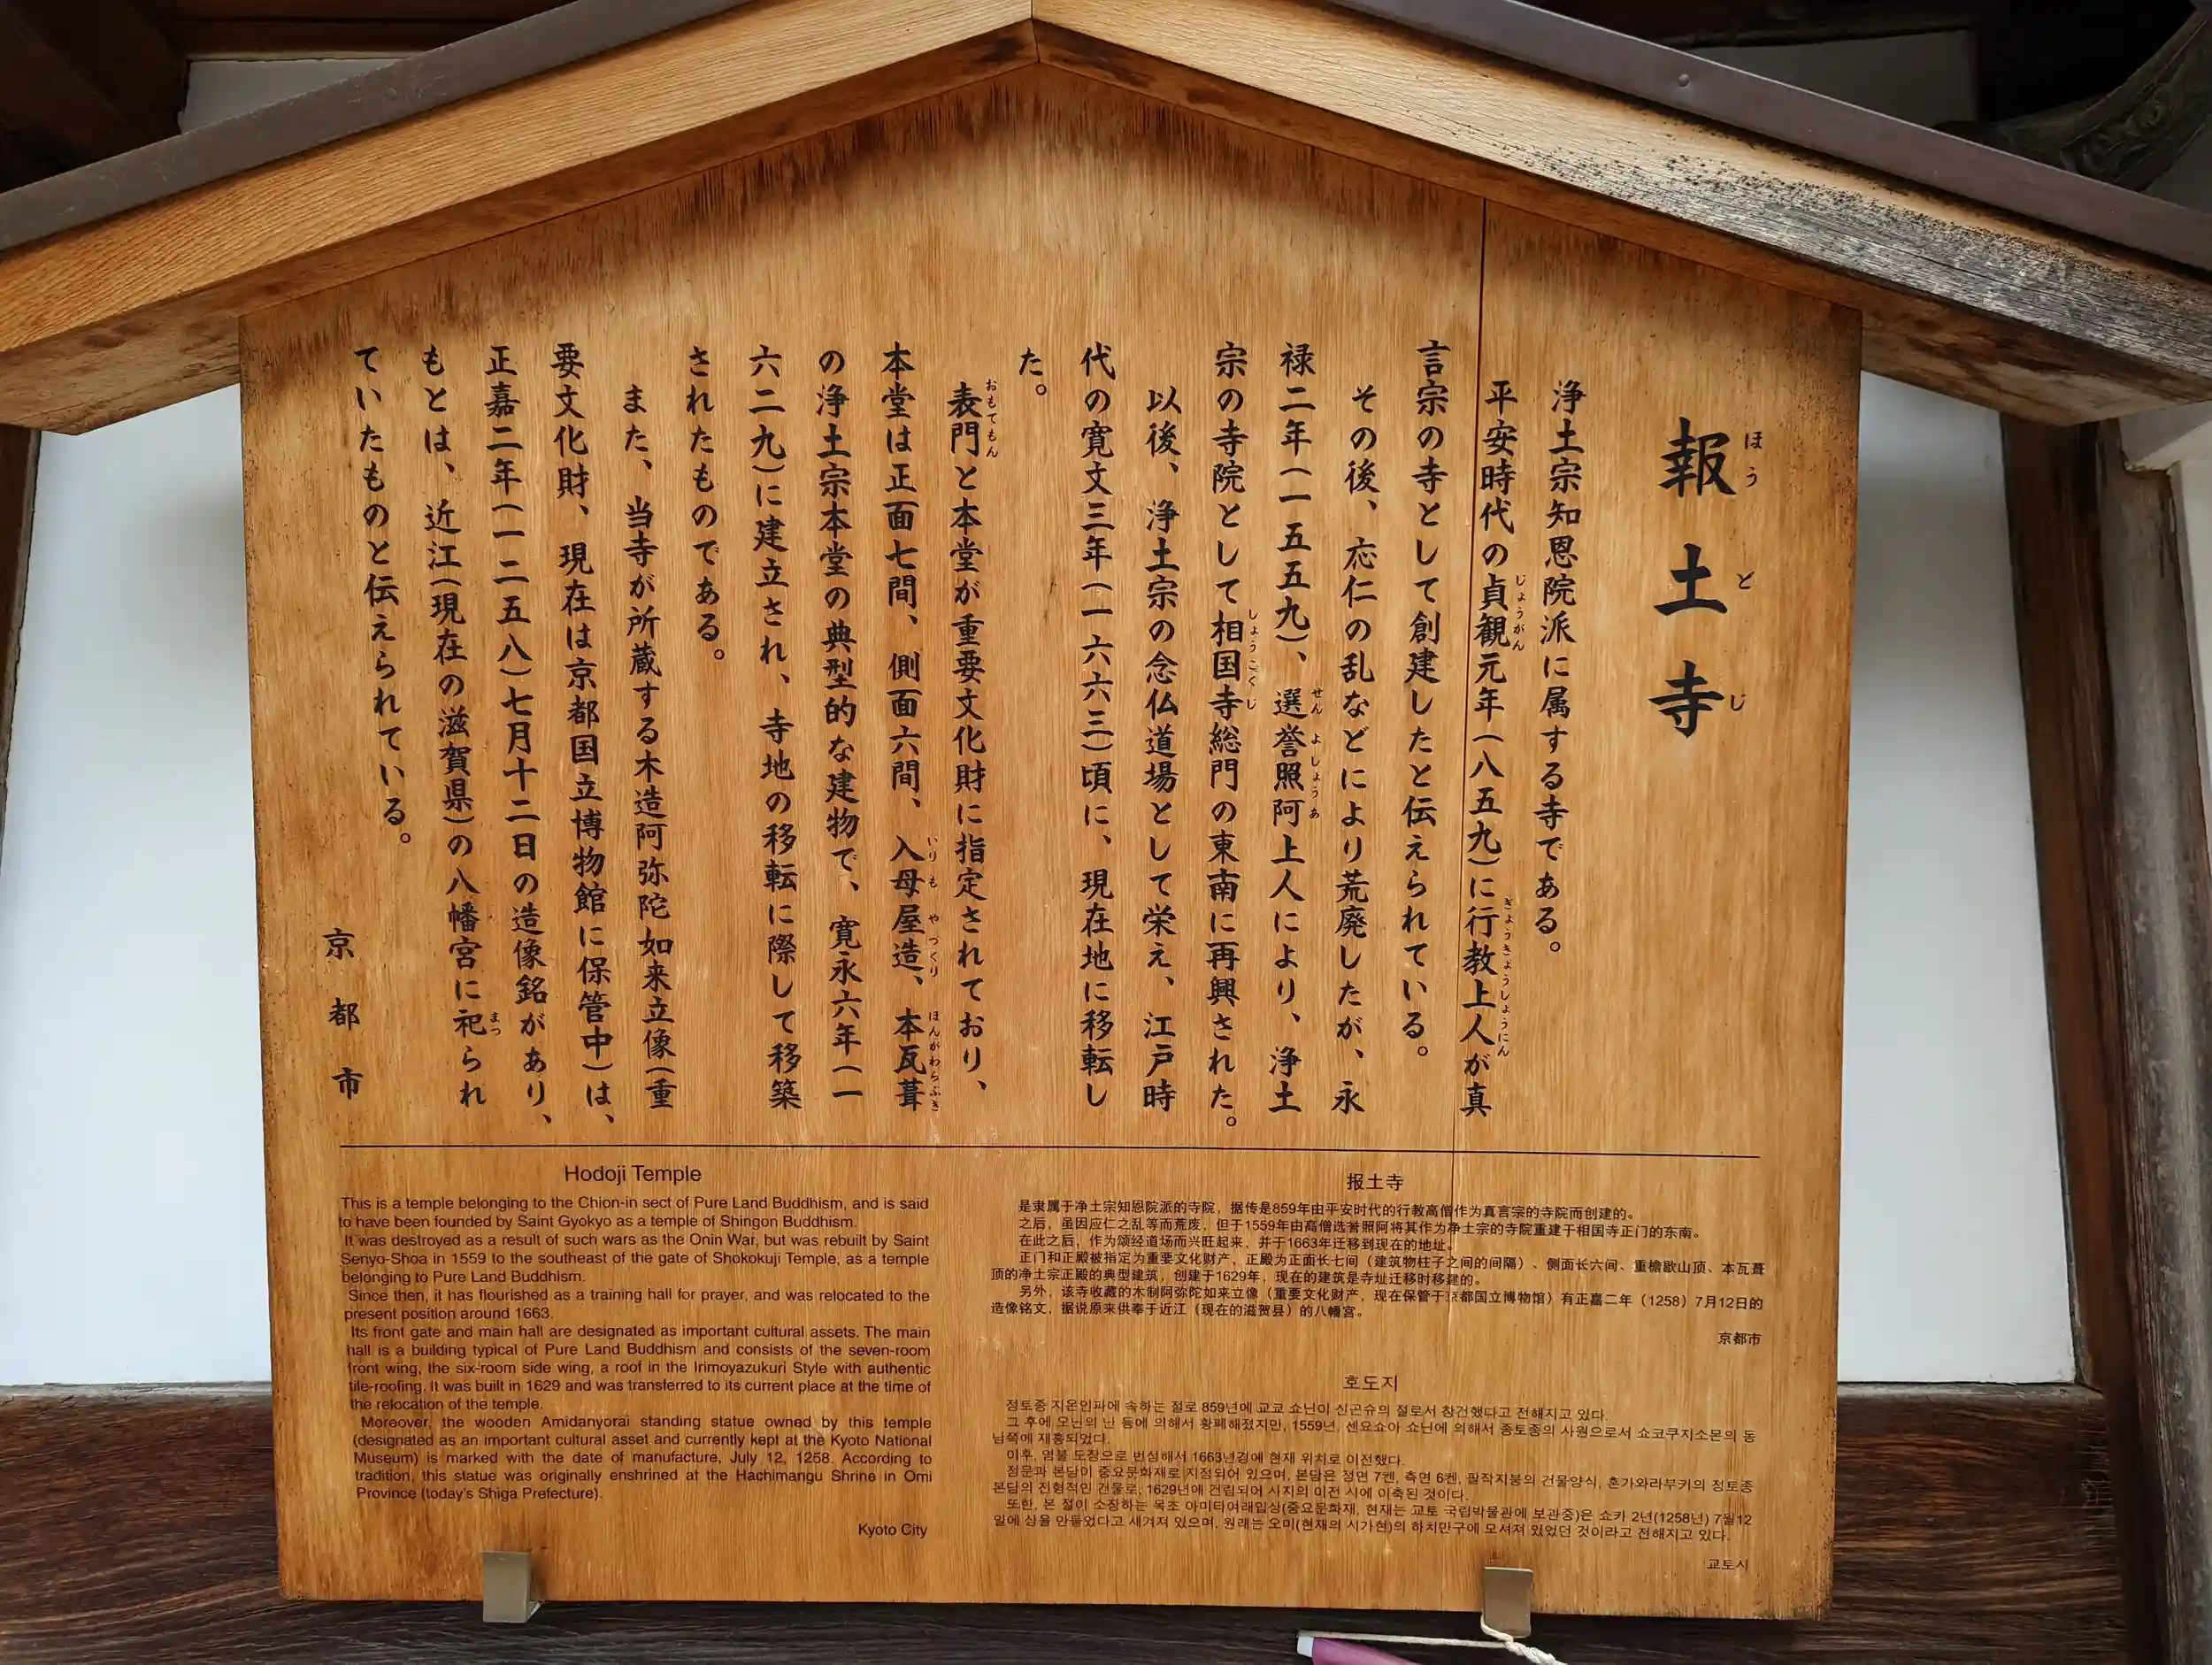 報土寺
ほうどじ
浄土宗知恩院派に属する寺である。
平安時代の貞観元年(八五九)に行教上人が真
じょうがん
ぎょうきょうしょうにん
言宗の寺として創建したと伝えられている。
その後、応仁の乱などにより荒廃したが、永
禄二年(一五五九)、選誉照阿上人により、浄土
せんよしょうあ
宗の寺院として相国寺総門の東南に再興された。
しょうこくじ
以後、浄土宗の念仏道場として栄え、江戸時
代の寛文三年(一六六三)頃に、現在地に移転し
た。
表門と本堂が重要文化財に指定されており、
おもてもん
本堂は正面七間、側面六間、入母屋造、本瓦葺
いりもやづくり
ほんがわらぶき
の浄土宗本堂の典型的な建物で、寛永六年(一
六二九)に建立され、寺地の移転に際して移築
されたものである。
また、当寺が所蔵する木造阿弥陀如来立像(重
要文化財、現在は京都国立博物館に保管中)は、
正嘉二年(一二五八)七月十二日の造像銘があり、
もとは、近江(現在の滋賀県)の八幡宮に祀られ
まつ
ていたものと伝えられている。
京都市
Hodoji Temple
This is a temple belonging to the Chion-in sect of Pure Land Buddhism, and is said
to have been founded by Saint Gyokyo as a temple of Shingon Buddhism.
It was destroyed as a result of such wars as the Onin War, but was rebuilt by Saint
Senyo-Shoa in 1559 to the southeast of the gate of Shokokuji Temple, as a temple
belonging to Pure Land Buddhism.
Since then, it has flourished as a training hall for prayer, and was relocated to the
present position around 1663.
Its front gate and main hall are designated as important cultural assets. The main
hall is a building typical of Pure Land Buddhism and consists of the seven-room
front wing, the six-room side wing, a roof in the Irimoyazukuri Style with authentic
tile-roofing. It was built in 1629 and was transferred to its current place at the time of
the relocation of the temple.
Moreover, the wooden Amidanyorai standing statue owned by this temple
(designated as an important cultural asset and currently kept at the Kyoto National
Museum) is marked with the date of manufacture, July 12, 1258. According to
tradition, this statue was originally enshrined at the Hachimangu Shrine in Omi
Province (today's Shiga Prefecture).
Kyoto City
报土寺
是隶属于净土宗知恩院派的寺院，据传是859年由平安时代的行教高僧作为真言宗的寺院而创建的。
之后，虽因应仁之乱等而荒废，但于1559年由高僧选誉照阿将其作为净土宗的寺院重建于相国寺正门的东南。
在此之后，作为颂经道场而兴旺起来，并于1663年迁移到现在的地址。
正门和正殿被指定为重要文化财产，正殿为正面长七间（建筑物柱子之间的间隔）、侧面长六间、重檐歇山顶、本瓦葺
顶的净土宗正殿的典型建筑，创建于1629年，现在的建筑是寺址迁移时移建的。
另外，该寺收藏的木制阿弥陀如来立像（重要文化财产，现在保管于京都国立博物馆）有正嘉二年（1258）7月12日的
造像铭文，据说原来供奉于近江（现在的滋贺县）的八幡宫。
京都市
호도지
정토종 지온인파에 속하는 절로 859년에 교쿄 쇼닌이 신곤슈의 절로서 창건했다고 전해지고 있다.
그 후에 오닌의 난 등에 의해서 황폐해졌지만, 1559년, 센요쇼아 쇼닌에 의해서 종토종의 사원으로서 쇼코쿠지소몬의 동
남쪽에 재흥되었다.
이후, 염불 도장으로 번성해서 1663년경에 현재 위치로 이전했다.
정문과 본당이 중요문화재로 지정되어 있으며, 본당은 정면 7켄, 측면 6켄, 팔작지붕의 건물양식, 혼가와라부키의 정토종
본당의 전형적인 건물로, 1629년에 건립되어 사지의 이전 시에 이축된 것이다.
또한, 본 절이 소장하는 목조 아미타여래입상(중요문화재, 현재는 교토 국립박물관에 보관중)은 쇼카 2년(1258년) 7월12
일에 상을 만들었다고 새겨져 있으며, 원래는 오미(현재의 시가현)의 하치만구에 모셔져 있었던 것이라고 전해지고 있다.
교토시